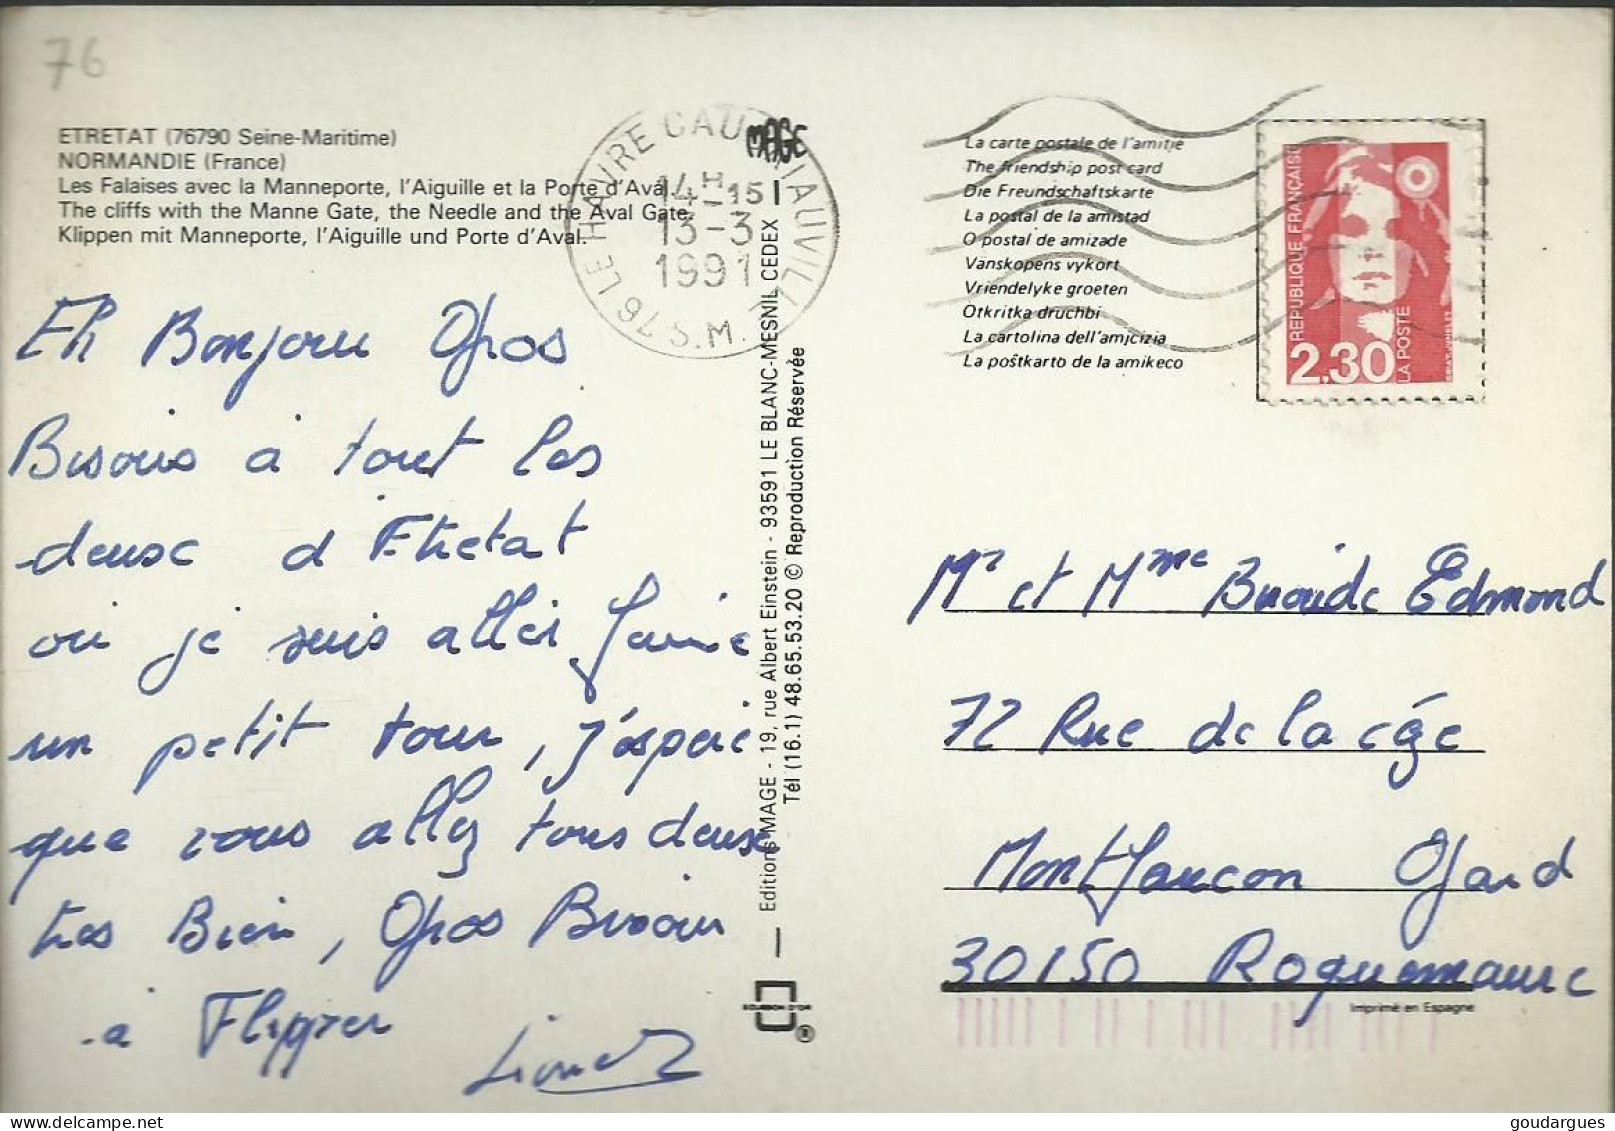 76
ETRETAT (76790 Seine-Maritime)
NORMANDIE (France)
Les Falaises avec la Manneporte, l'Aiguille et la Porte d'Aval.
The cliffs with the Manne Gate, the Needle and the Aval Gate.
Klippen mit Manneporte, l'Aiguille und Porte d'Aval.
MAGE
76 LE HAVRE CAUCRIAUVILLE S.M.
14H-15
13-3
1991
Eh Bonjour Gros
Bisous à tout les
deux d'Etretat
ou je suis aller faire
un petit tour, j'éspère
que vous allez tous deux
tres Bien, Gros Bisou
à Flipper
Lionel
Editions MAGE - 19, rue Albert Einstein - 93591 LE BLANC-MESNIL CEDEX
Tél (16.1) 48.65.53.20 © Reproduction Réservée
®
La carte postale de l'amitie
The friendship post card
Die Freundschaftskarte
La postal de la amistad
O postal de amizade
Vänskopens vykort
Vriendelyke groeten
Otkritka druchbi
La cartolina dell'amjcizia
La poštkarto de la amikeco
REPUBLIQUE FRANÇAISE
2.30
LA POSTE
BRIAT-JUMELET
Mr et Mme Edmond
72 Rue de la cége
Montfaucon Gard
30150 Roquemaure
Imprimé en Espagne
goudargues